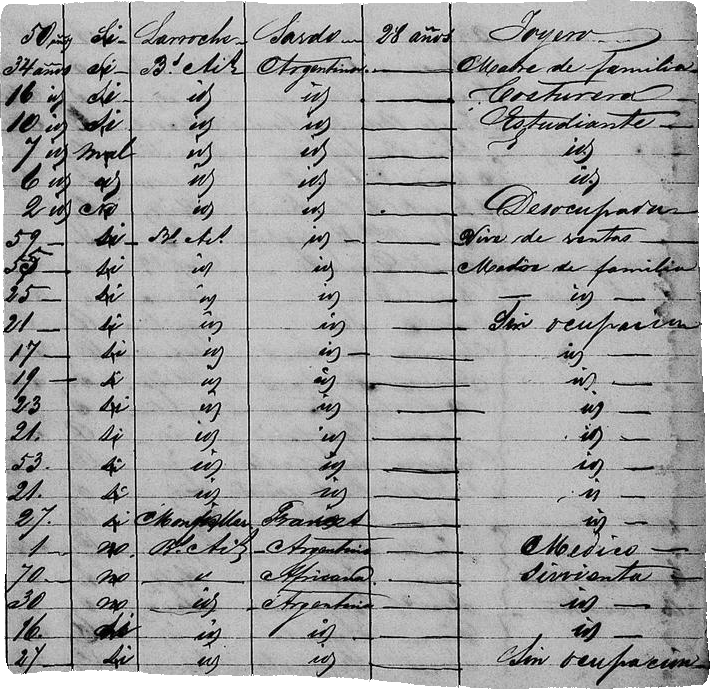 50 años Si Larroche Sardo 28 años Joyero
34 años si Bs Ais Argentina Madre de familia
16 id Si id id Costurera
10 id Si id id Estudiante
7 id mal id id id
6 id id id id id
2 id No id id Desocupada
59 si Bs As id Vive de rentas
55 si id id Madre de familia
25 si id id id
21 si id id Sin ocupacion
17 si id id id
19 si id id id
23 si id id id
21. si id id id
53. si id id id
21. si id id id
27. si id
1 no Bs Ais Argentino Medico
70 no Africana sirvienta
30 no id Argentina id
16. si id id id
27 si id id Sin ocupacion